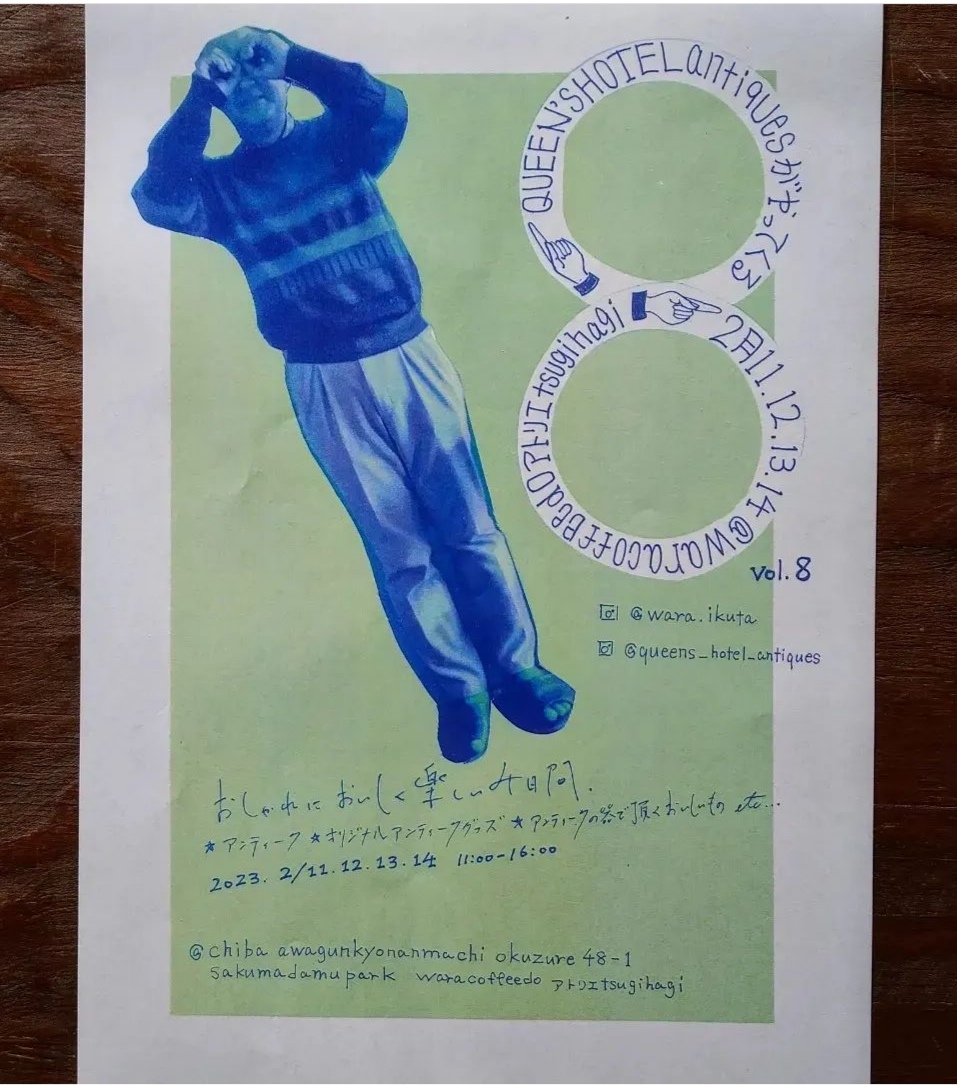 QUEEN'SHOTELantiquesがやってくる
2月11.12.13.14@waracoffeedoアトリエtsugihagi
vol.8
@wara.ikuta
@queens_hotel_antiques
おしゃれにおいしく楽しい4日間.
★アンティーク ★オリジナルアンティークグッズ ★アンティークの器で頂くおいしいもの etc...
2023. 2/11.12.13.14 11:00-16:00
@chiba awagunkyonanmachi okuzure 48-1
Sakumadamupark waracoffeedo アトリエtsugihagi